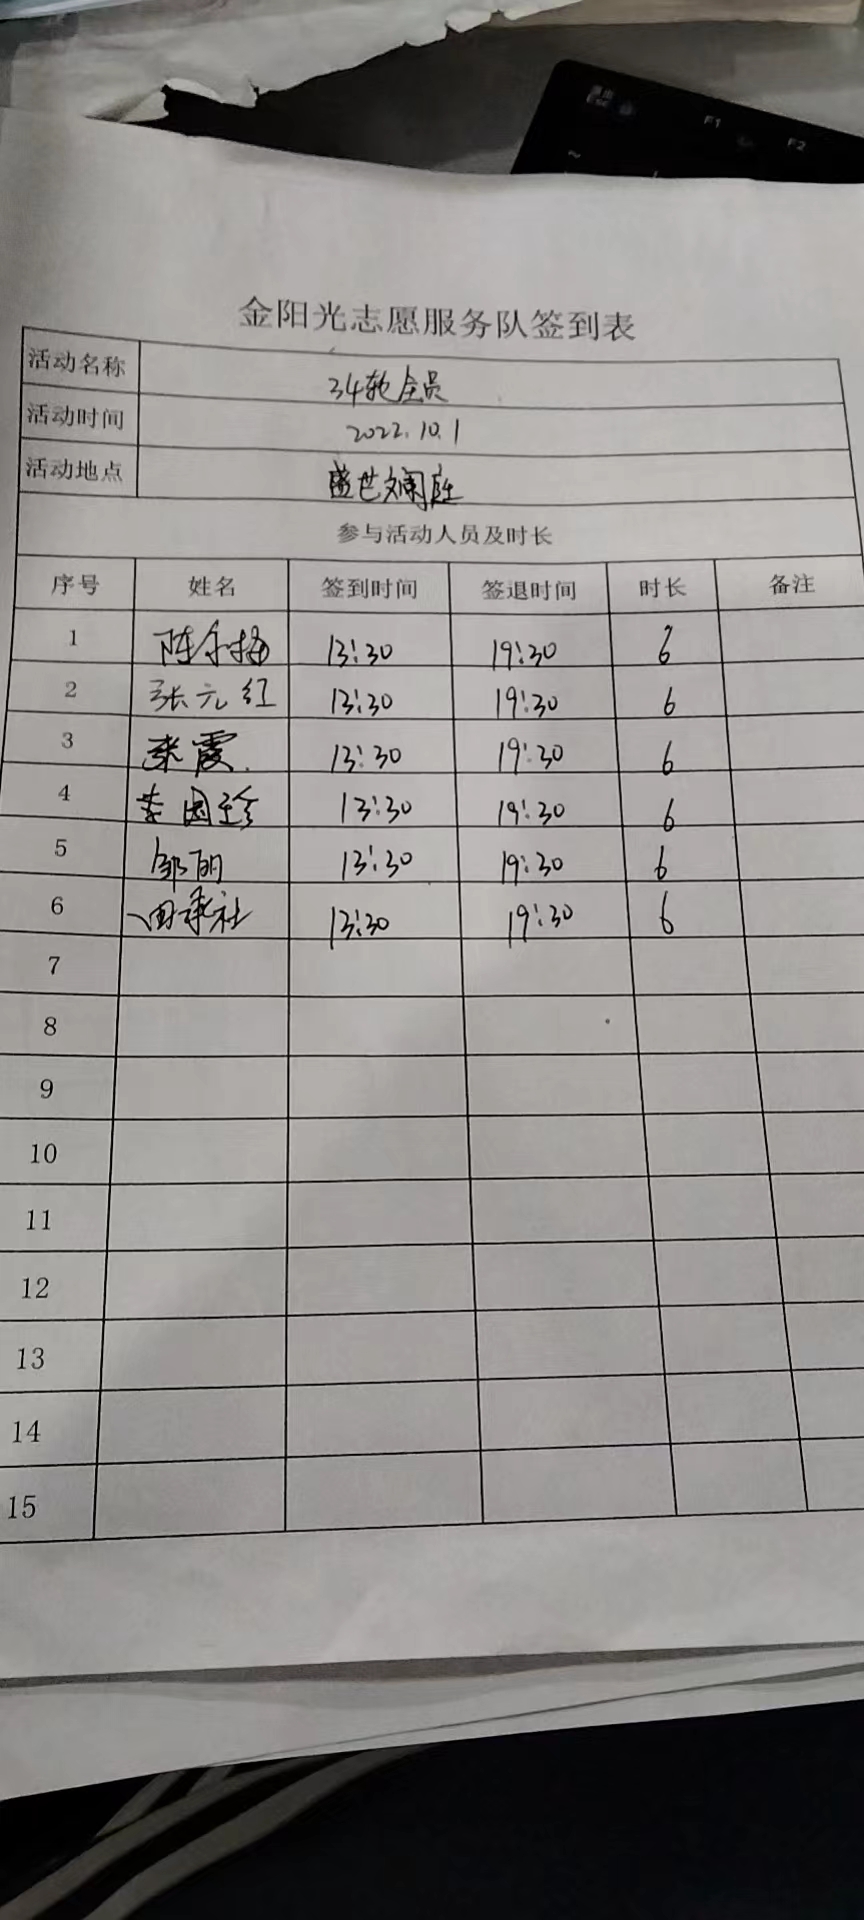 金阳光志愿服务队签到表
活动名称 34轮全员
活动时间 2022.10.1
活动地点 盛世斓庭
参与活动人员及时长
序号 姓名 签到时间 签退时间 时长 备注
1 陈 梅 13:30 19:30 6
2 张元红 13:30 19:30 6
3 霞 13:30 19:30 6
4 李国珍 13:30 19:30 6
5 邹丽 13:30 19:30 6
6 田承社 13:30 19:30 6
7
8
9
10
11
12
13
14
15
Esc F1 F2
~